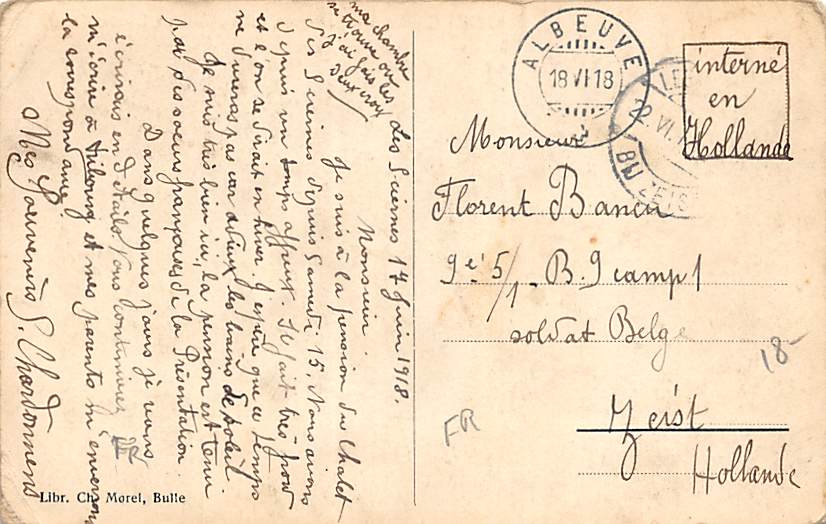 ma chambre
se trouve où
j'ai fais les
deux croix
Les Sciernes 17 Juin 1918.
Monsieur
Je suis à la pension du Chalet
des Sciernes depuis Samedi 15. Nous avons
depuis un temps affreux. Il fait très froid
et l'on se dirait en hiver. J'espère que ce temps
ne durera pas car adieux les bains de soleil
Je suis très bien ici, la pension est tenue
par des soeurs françaises de la Présentation.
Dans quelques jours je vous
écrirais en détails. Vous continuez
m'écrire à Fribourg et mes parents m'enverrons
la correspondance
Mes Souvenirs G. Chardonnens
Libr. Ch. Morel, Bulle
ALBEUVE
18 VI 18
interné
en
Hollande
22 VI
Monsieur
Florent
9e 5/1 - B. 9 camp 1
soldat Belge
18-
FR
Zeist
Hollande